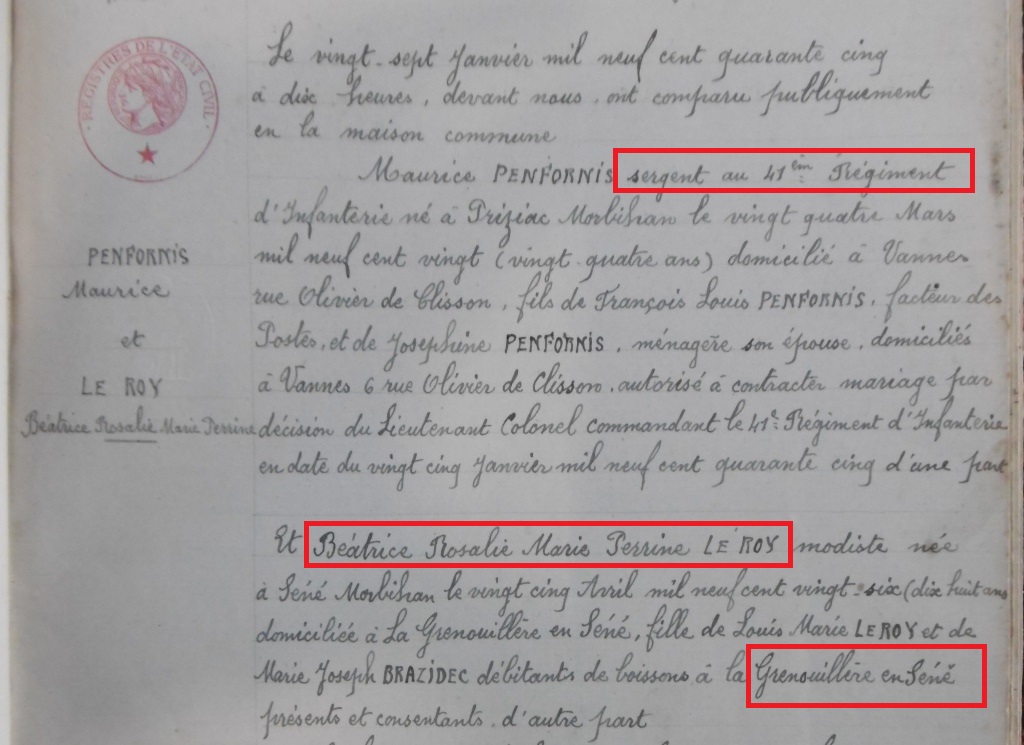 REGISTRES DE L'ETAT CIVIL
Le vingt-sept Janvier mil neuf cent quarante cinq
à dix heures, devant nous, ont comparu publiquement
en la maison commune
Maurice PENFORNIS sergent au 41èm Régiment
d'Infanterie né à Priziac Morbihan le vingt quatre Mars
mil neuf cent vingt (vingt-quatre ans) domicilié à Vannes
rue Olivier de Clisson, fils de François Louis PENFORNIS, facteur des
Postes, et de Josephine PENFORNIS, ménagère son épouse, domiciliés
à Vannes 6 rue Olivier de Clisson, autorisé à contracter mariage par
décision du Lieutenant Colonel commandant le 41e Régiment d'Infanterie
en date du vingt cinq Janvier mil neuf cent quarante cinq d'une part
PENFORNIS
Maurice
et
LE ROY
Béatrice Rosalie Marie Perrine
Et Béatrice Rosalie Marie Perrine LE ROY modiste née
à Séné Morbihan le vingt cinq Avril mil neuf cent vingt-six (dix huit ans
domiciliée à La Grenouillère en Séné, fille de Louis Marie LE ROY et de
Marie Joseph BRAZIDEC débitants de boissons à la Grenouillère en Séné
présents et consentants, d'autre part